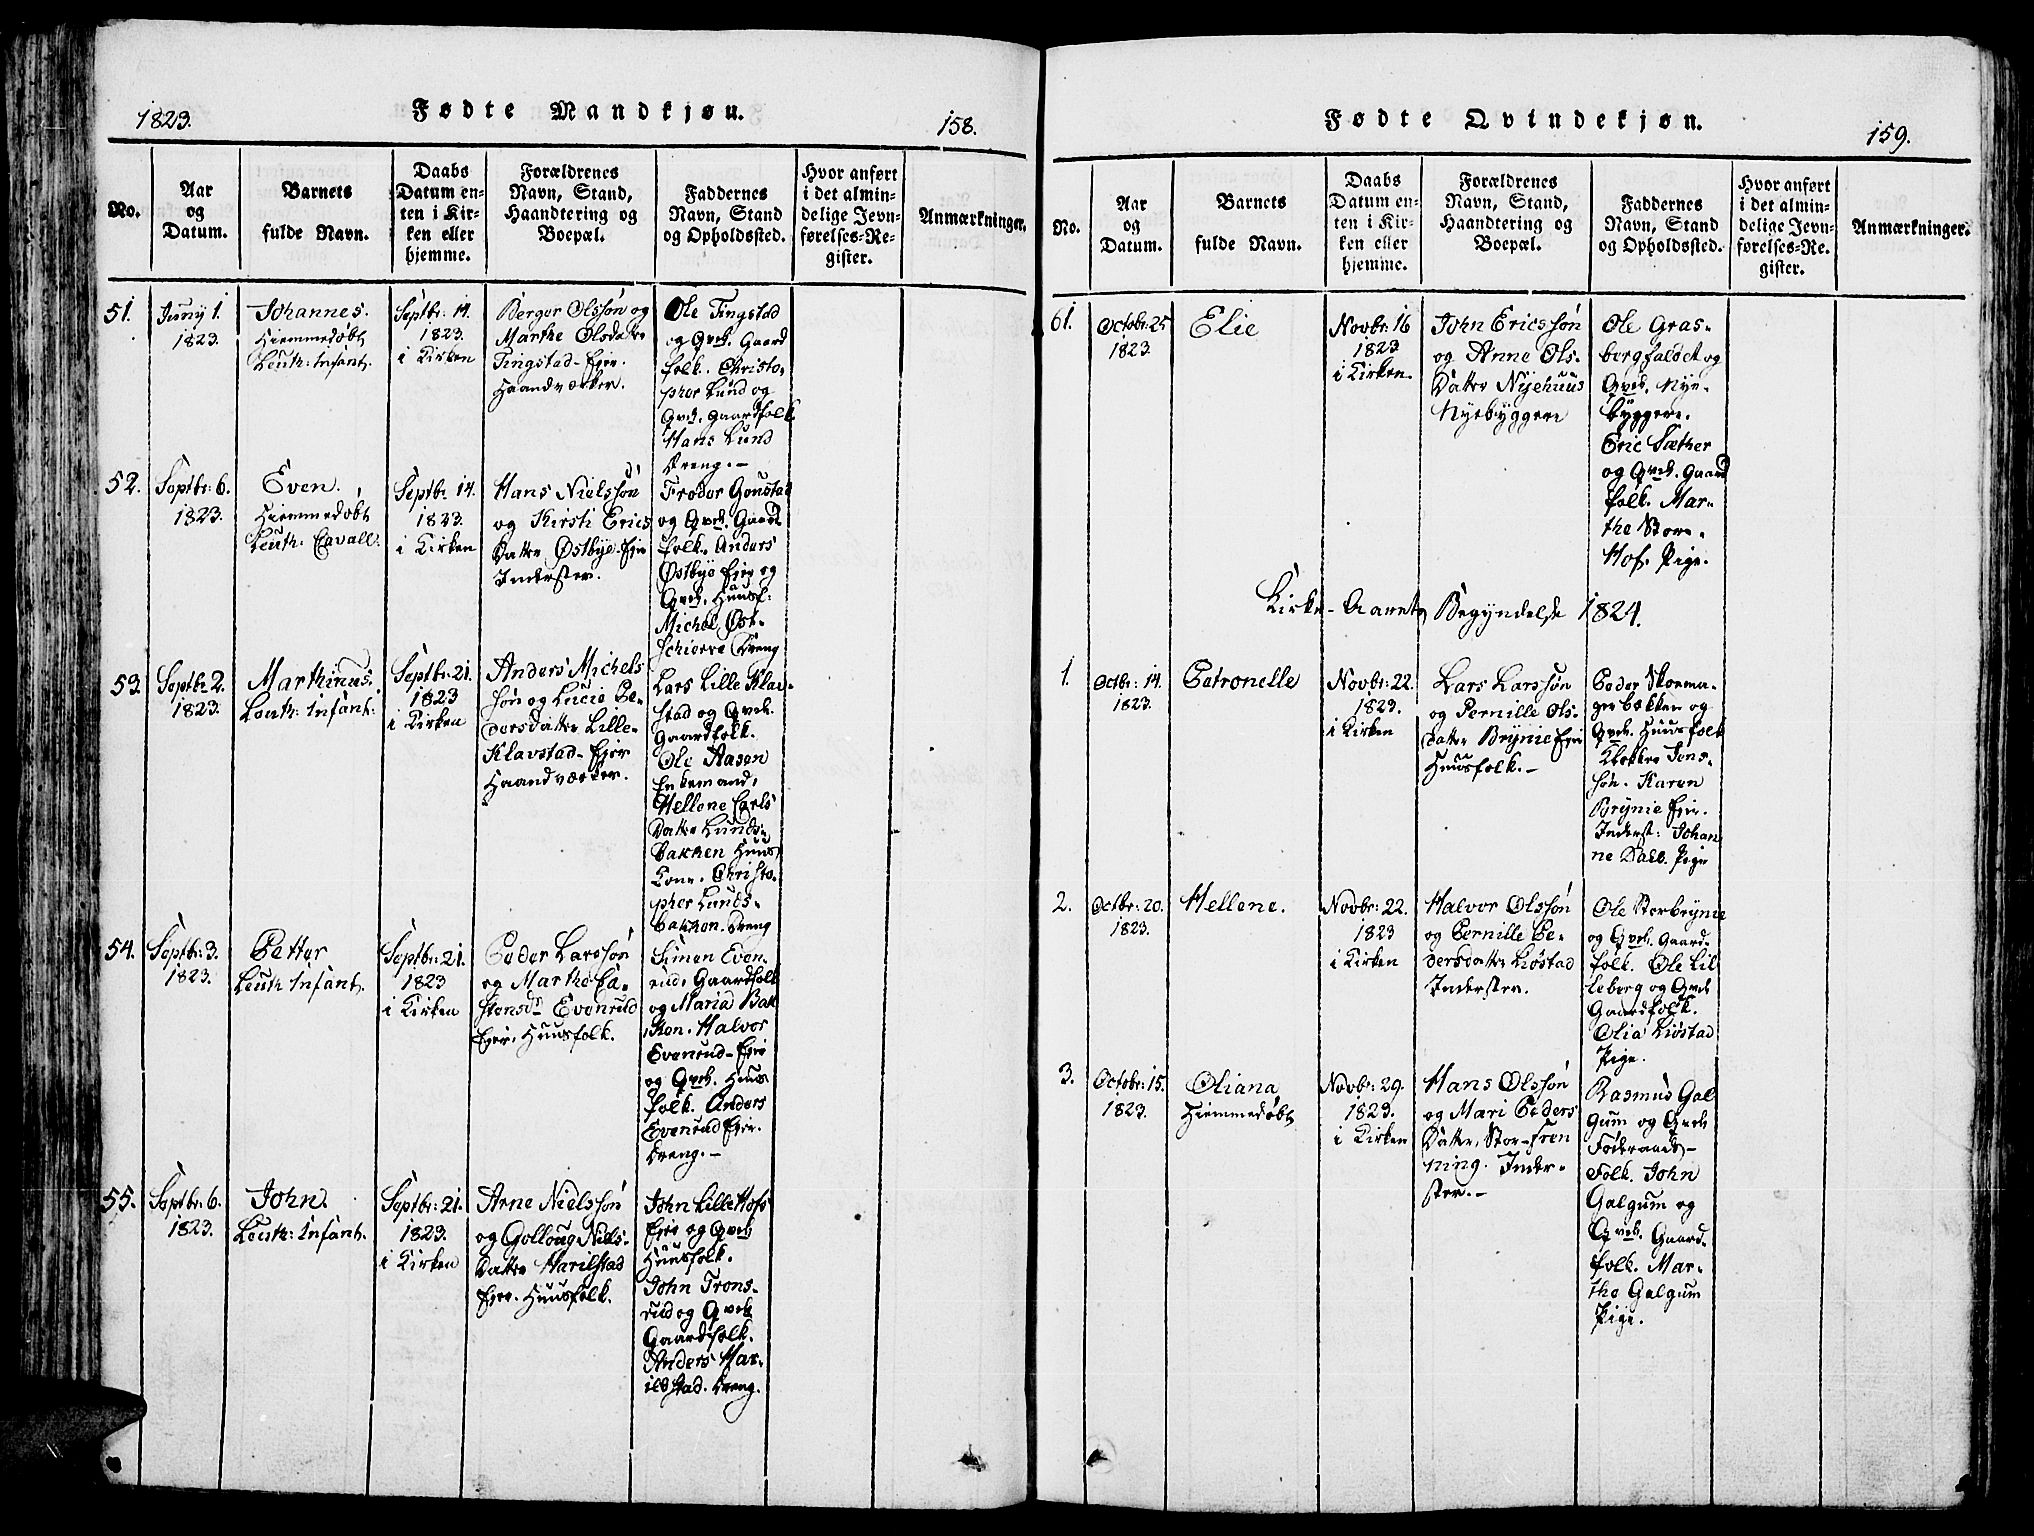 1823.
Fødte Mandkjøn.
158.
No.
Aar
og
Datum.
Barnets
fulde Navn.
Daabs
Datum en-
ten i Kir-
ken eller
hjemme.
Forældrenes
Navn, Stand,
Haandtering og
Boepæl.
Faddernes
Navn, Stand
og Opholdssted.
Hvor anført
i det almin-
delige Jevn-
førelses-Re-
gister.
Anmærkninger.
51.
Juny 1.
1823.
Johannes.
Hiemmedøbt
Leuth: Infant.
Septbr: 14.
1823.
i Kirken
Berger Olssøn og
Marthe Olsdatter
Tingstad- Eier.
Haandværker.
Ole Tingstad
og Qvd. Gaard
folk. Christo-
pher Lund og
Qvd. Gaardfolk
Hans Lund
Dreng.-
52.
Septbr: 6.
1823.
Even.
Hiemmedøbt
Leuth: Cavall.
Septbr 14.
1823.
i Kirken
Hans Nielssøn
og Kirsti Erics
Datter Østbye-Eier
Inderster.
Froder Gonstad
og Qvd. Gaard
folk. Anders
Østbye Eier og
Qvd. Huusf:
Michel Øst-
Dreng
53.
Septbr 2.
1823.
Marthinus.
Leuth: Infant:
Septbr: 21.
1823
i Kirken
Anders Michels
søn og Lucie Pe-
dersdatter Lille-
Klavstad- Eier
Haandværker.
Lars Lille Klav-
stad og Qvd.
Gaardfolk.
Ole Aasen
Enkemand,
Hellene Carls
Datter Lunds-
bakken Huus
Kone. Christo-
pher Lunds-
bakken. Dreng
54.
Septbr: 3.
1823.
Petter
Leuth: Infant.
Septbr: 21.
1823
i Kirken
Peder Larssøn
og Marthe Pa-
stensdr Evenrud
Eier. Huusfolk.
Simen Even-
rud, Gaardfolk
og Maria Bak
ken. Halvor
Evenrud- Eier
og Qvd. Huus
folk. Anders
Evenrud Eier.
Dreng.-
55.
Septbr: 6.
1823.
John.
Leuth: Infant.
Septbr: 21.
1823.
i Kirken
Arne Nielssøn
og Golloug Niels-
Datter Harilstad
Eier. Huusfolk.
John Lille Hofs
Eier og Qvd
Huusfolk.
John Trons-
rud og Qvd
Gaardfolk.
Anders Har-
ildstad. Dreng.
Fødte Qvindekjøn.
159.
No.
Aar
og
Datum.
Barnets
fulde Navn.
Daabs
Datum en-
ten i Kir-
ken eller
hjemme.
Forældrenes
Navn, Stand,
Haandtering og
Boepæl.
Faddernes
Navn, Stand
og Opholdssted.
Hvor anført
i det almin-
delige Jevn-
førelses-Re-
gister.
Anmærkninger.
61.
Octobr: 25
1823.
Elie
Novbr: 16
1823
i Kirken.
John Ericssøn
og Anne Ols-
Datter Nyehuus
Nyebyggere
Ole Gras-
bergfaldet og
Qvd. Nye-
byggere.
Eric Sæther
og Qvd. Gaard
folk. Mar-
the Store-
Hof. Pige.
Kirke-Aarets Begyndelse 1824.
1.
Octbr: 14.
1823.
Petronelle
Novbr: 22.
1823.
i Kirken
Lars Larssøn
og Pernille Ols-
datter Brynie Eier
Huusfolk.-
Peder Skoma-
gerbakken og
Qvd. Huusfolk
Klokker Jens-
søn. Karen
Brynie Eier.
Inderst: Johan
ne Dahl. Pige
2.
Octbr: 20.
1823.
Hellene.
Novbr: 22.
1823
i Kirken
Halvor Olssøn
og Pernille Pe-
dersdatter Liøstad
Inderster.
Ole Storbrynie
og Qvd. Gaard-
folk. Ole Lil
leberg og Qvd
Gaardfolk.
Olia Liøstad
Pige.
3.
Octobr: 15.
1823.
Oliana,
Hiemmedøbt
Novbr: 29.
1823.
i Kirken
Hans Olssøn
og Mari Peders
Datter, Stor-Fren
ning. Inder-
ster.-
Rasmus Gal
gum og Qvd
Føderaads-
Folk. John
Galgum og
Qvd. Gaard-
folk. Mar-
the Galgum
Pige.